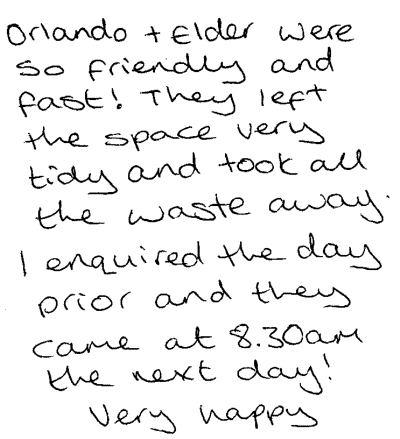 Orlando + Elder were
so friendly and
fast! They left
the space very
tidy and took all
the waste away.
I enquired the day
prior and they
came at 8.30am
the next day!
Very happy